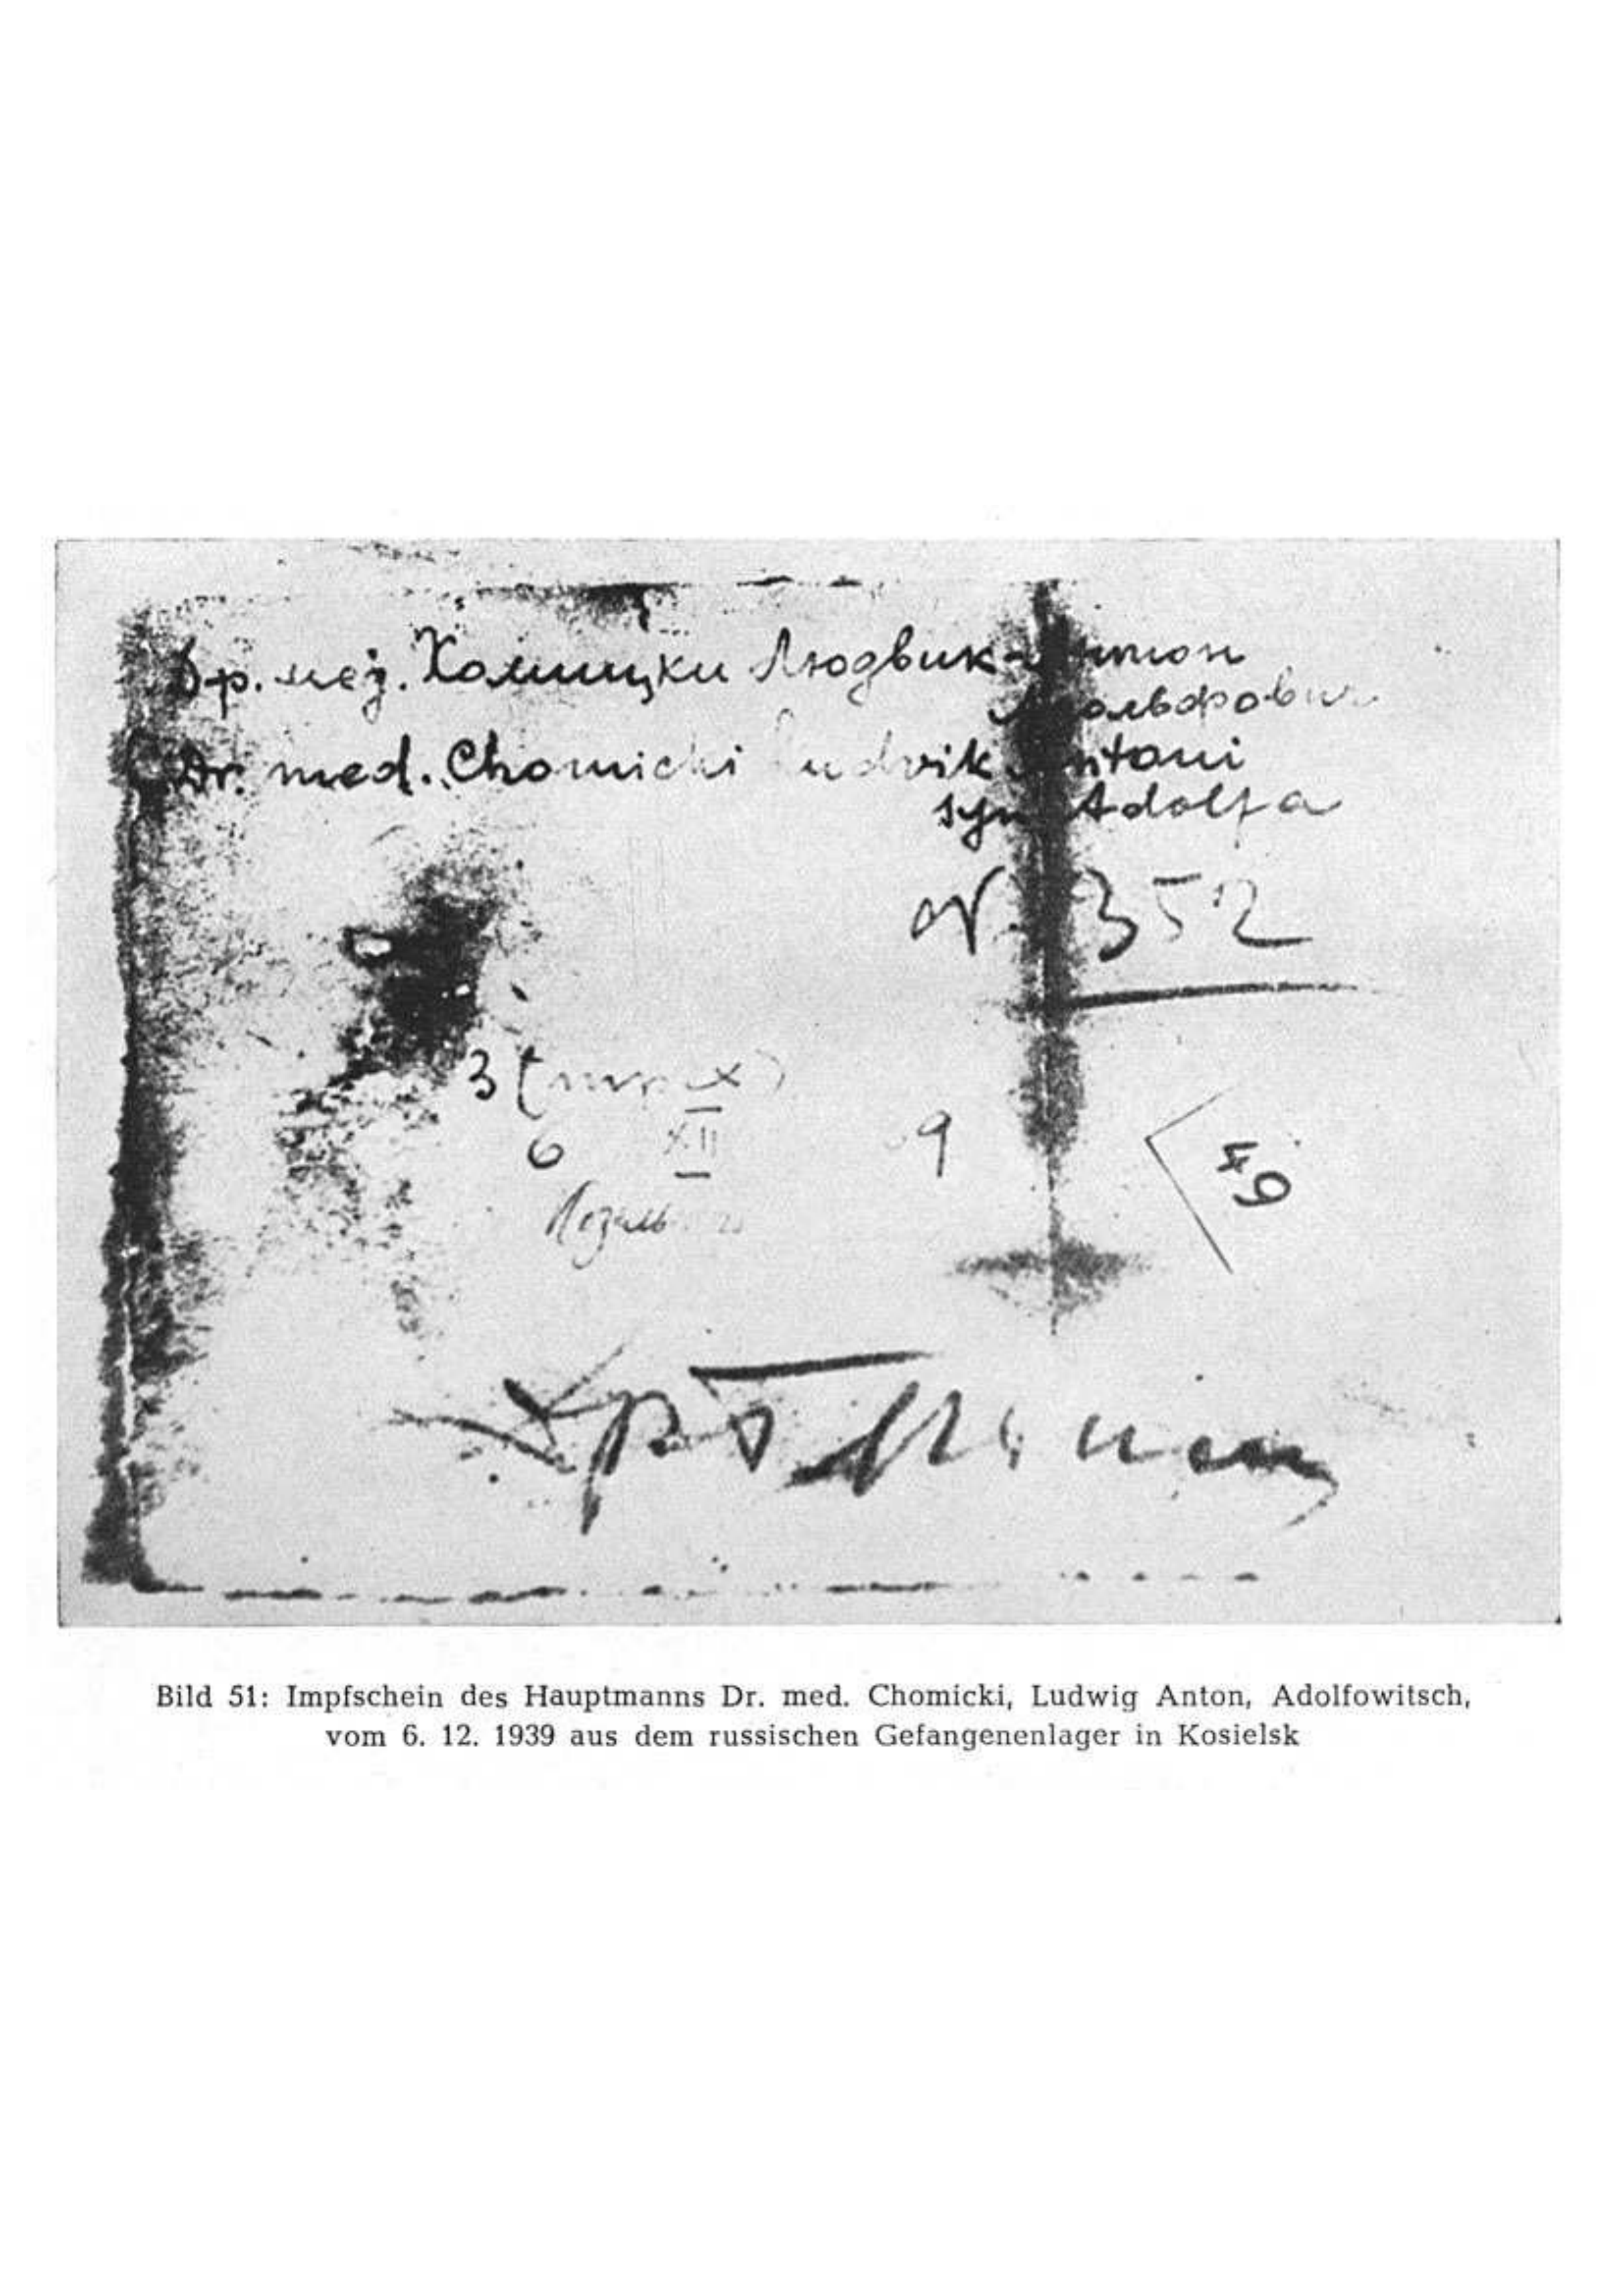 Др. мед. Хомицки Людвик-Антон
Адольфович
Dr. med. Chomicki Ludvik Antoni
syn Adolfa
N 352
3 (
6 XII 9
49
Bild 51: Impfschein des Hauptmanns Dr. med. Chomicki, Ludwig Anton, Adolfowitsch,
vom 6. 12. 1939 aus dem russischen Gefangenenlager in Kosielsk